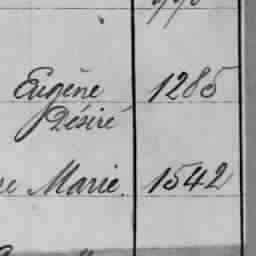 Eugène 1285
Désiré
re Marie. 1542